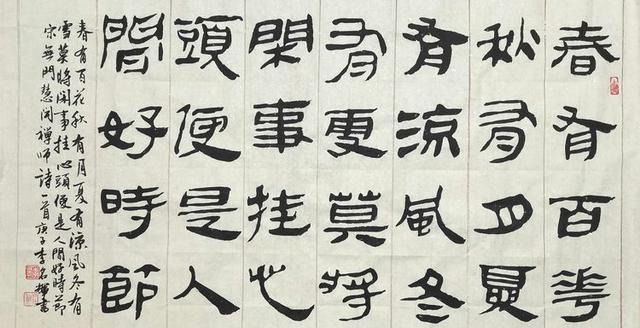 春有百花
秋有月夏
有涼風冬
有雪莫將
閑事挂心
頭便是人
間好時節
春有百花秋有月夏有涼風冬有
雪莫將閑事挂心頭便是人間好時節
宋無門慧開禪師詩一首庚子李名書